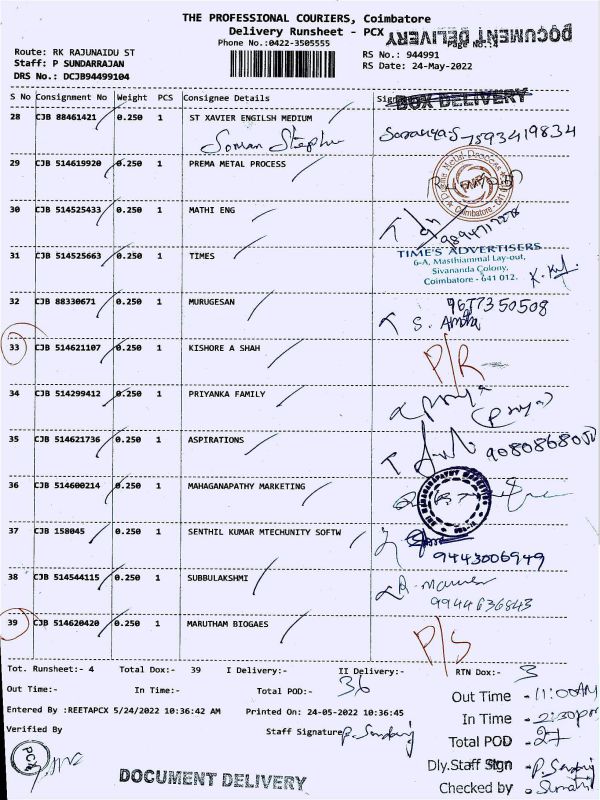 THE PROFESSIONAL COURIERS, Coimbatore
Delivery Runsheet - PCX
DOCUMENT DELIVERY
Phone No.:0422-3505555
Page No.:4
Route: RK RAJUNAIDU ST
Staff: P SUNDARRAJAN
DRS No.: DCJB94499104
RS No.: 944991
RS Date: 24-May-2022
S No Consignment No Weight PCS Consignee Details
BOX DELIVERY
28 CJB 88461421 0.250 1 ST XAVIER ENGILSH MEDIUM
7593419834
29 CJB 514619920 0.250 1 PREMA METAL PROCESS
30 CJB 514525433 0.250 1 MATHI ENG
31 CJB 514525663 0.250 1 TIMES
TIME'S ADVERTISERS
6-A, Masthiammal Lay-out,
Sivananda Colony,
Coimbatore - 641 012.
32 CJB 88330671 0.250 1 MURUGESAN
9677350508
33 CJB 514621107 0.250 1 KISHORE A SHAH P/R
34 CJB 514299412 0.250 1 PRIYANKA FAMILY
35 CJB 514621736 0.250 1 ASPIRATIONS
36 CJB 514600214 0.250 1 MAHAGANAPATHY MARKETING
37 CJB 158045 0.250 1 SENTHIL KUMAR MTECHUNITY SOFTW
9443006949
38 CJB 514544115 0.250 1 SUBBULAKSHMI
9944636843
39 CJB 514620420 0.250 1 MARUTHAM BIOGAES P/S
Tot. Runsheet:- 4 Total Dox:- 39 I Delivery:- II Delivery:- RTN Dox:- 3
Out Time:- In Time:- Total POD:- 36
Entered By :REETAPCX 5/24/2022 10:36:42 AM Printed On: 24-05-2022 10:36:45
Verified By Staff Signature
PCX
Out Time - 11:00AM
In Time - 2:30pm
Total POD - 27
Dly.Staff Sign
Checked by
DOCUMENT DELIVERY